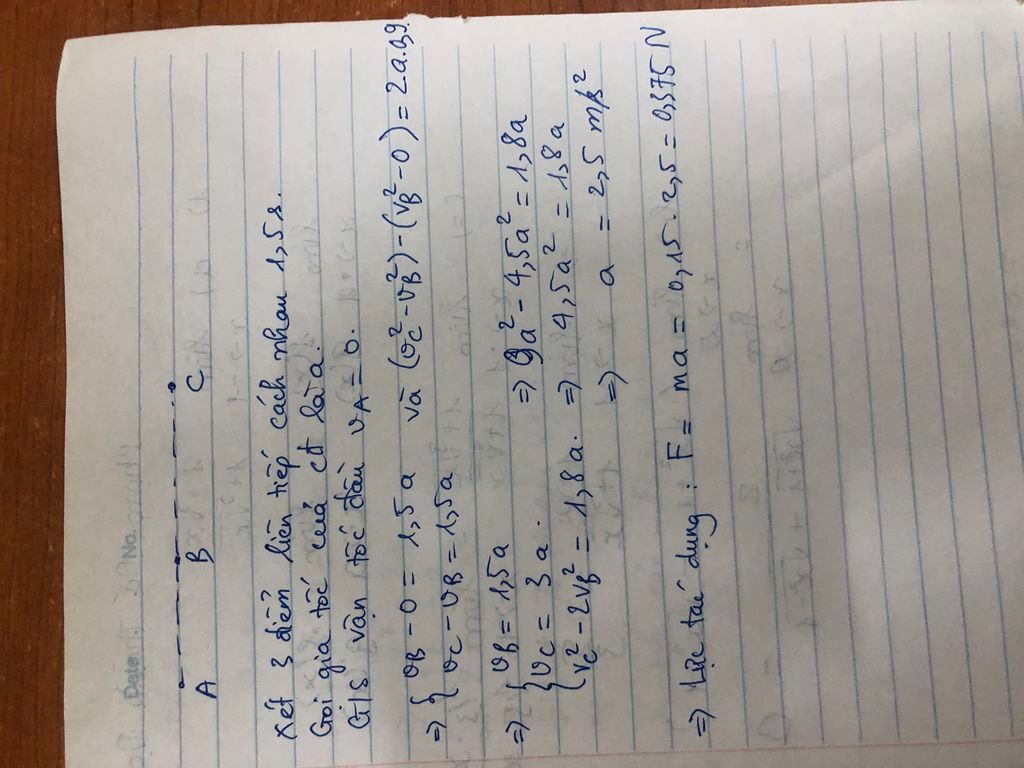 Date No.
A B C
Xét 3 điểm liên tiếp cách nhau 1,5s.
Gọi gia tốc của cđ là a.
G/s vận tốc đầu vA = 0.
=> { vB - 0 = 1,5a và (vC² - vB²) - (vB² - 0) = 2a.0,9.
vC - vB = 1,5a
=> { vB = 1,5a => 9a² - 4,5a² = 1,8a
vC = 3a.
vC² - 2vB² = 1,8a. => 4,5a² = 1,8a
=> a = 2,5 m/s²
=> Lực tác dụng: F = ma = 0,15. 2,5 = 0,375 N